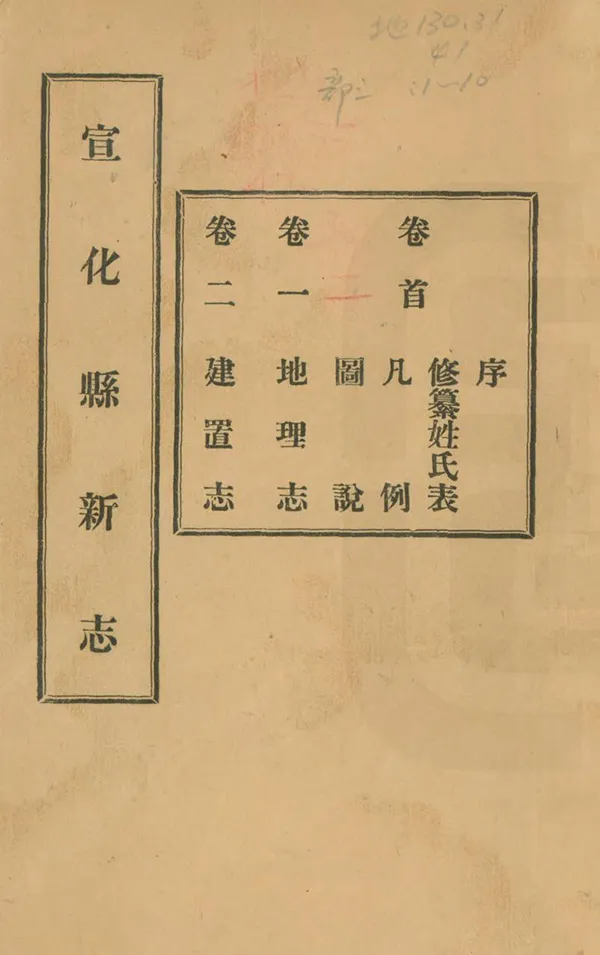 地130.31
41
部二:1-10
宣化縣新志
卷首
序
修纂姓氏表
凡例
圖說
卷一 地理志
卷二 建置志